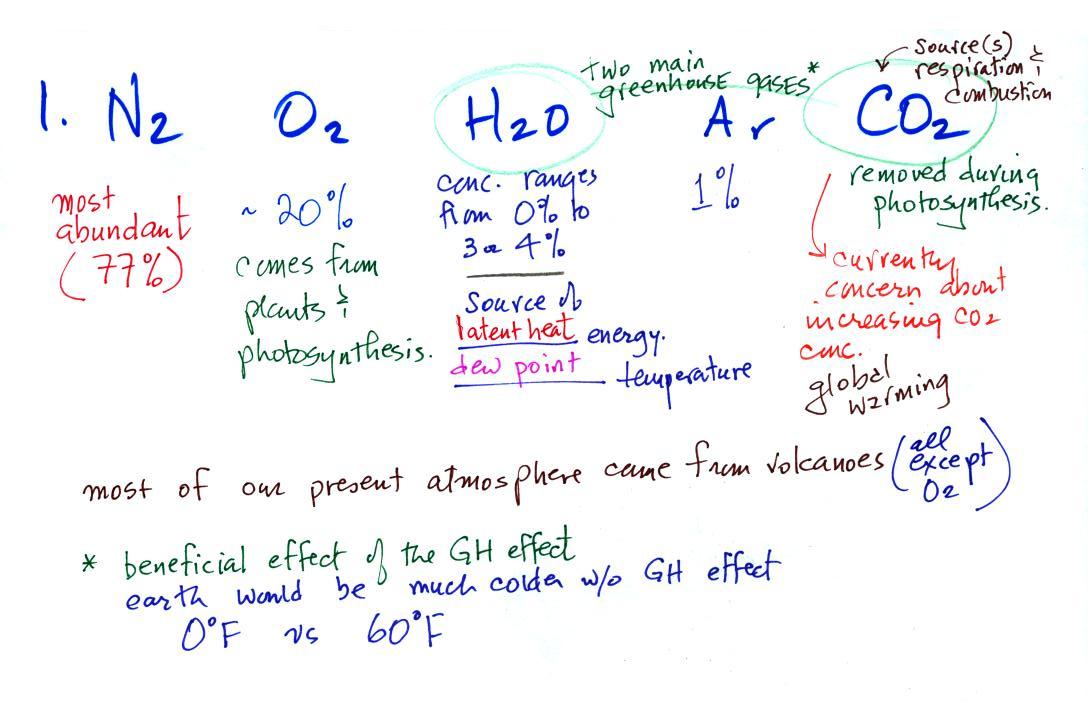 1. N2 O2 H2O Ar CO2
two main
greenhouse gases*
source(s)
respiration &
combustion
most
abundant
(77%)
~ 20%
comes from
plants &
photosynthesis.
conc. ranges
from 0% to
3 or 4%
source of
latent heat energy.
dew point temperature
1%
removed during
photosynthesis.
currently
concern about
increasing CO2
conc.
global
warming
most of our present atmosphere came from volcanoes (all
except
O2)
* beneficial effect of the GH effect
earth would be much colder w/o GH effect
0°F vs 60°F